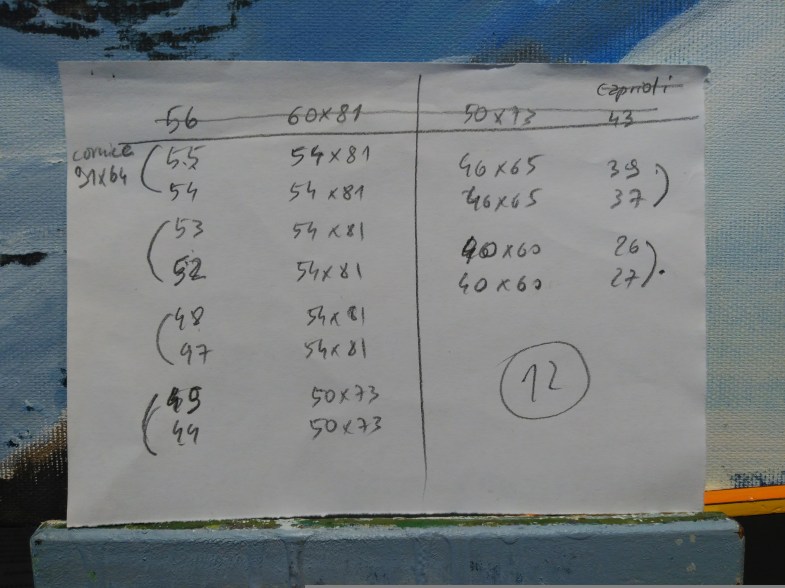 56 60x81
cornice
91x64
55 54x81
54 54x81
53 54x81
52 54x81
48 54x81
47 54x81
49 50x73
44 50x73
caprioli
50x73 43
46x65 39
46x65 37
40x60 26
40x60 27
12